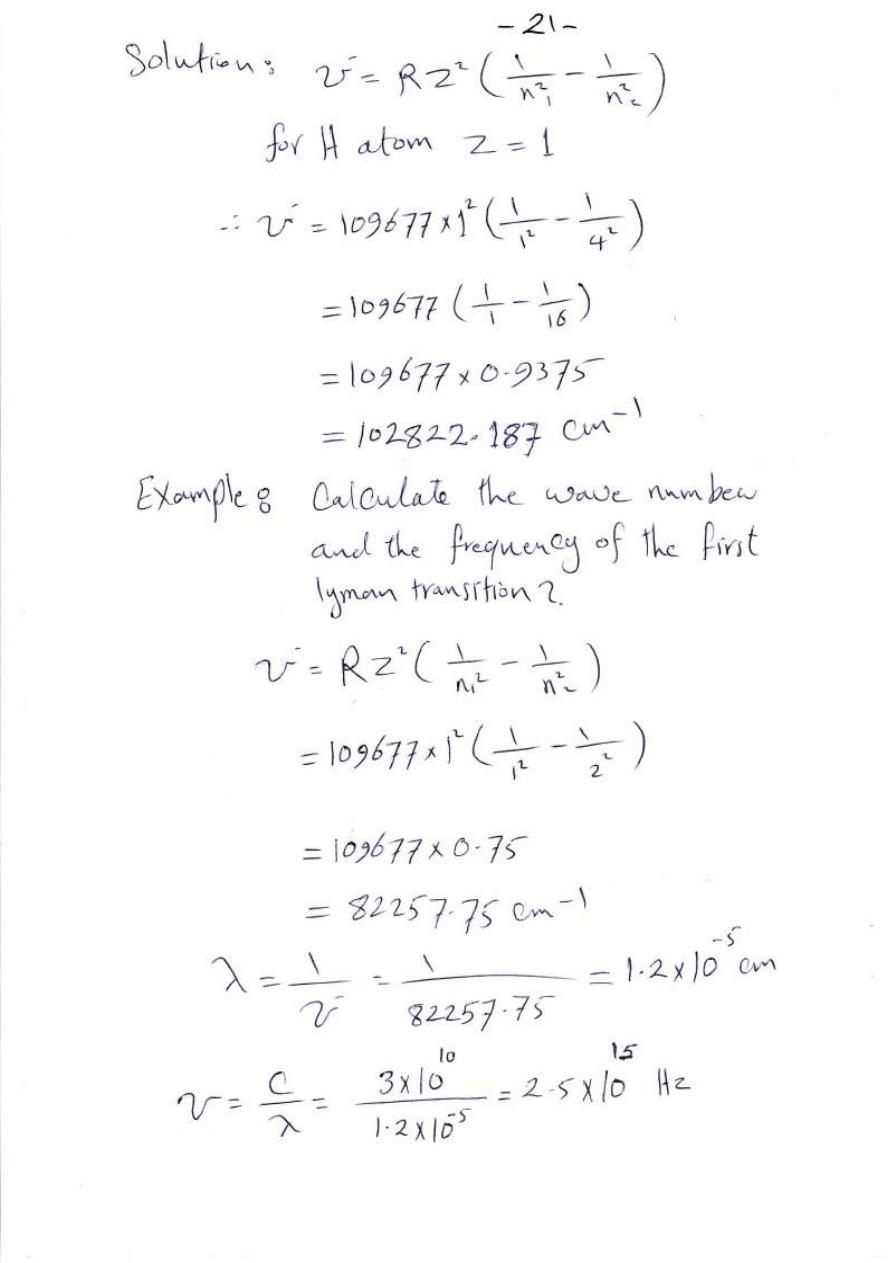 -21-
Solution: ν̄ = RZ² (1/n₁² - 1/n₂²)
for H atom Z = 1
∴ ν̄ = 109677 × 1² (1/1² - 1/4²)
= 109677 (1/1 - 1/16)
= 109677 × 0.9375
= 102822.187 cm⁻¹
Example: Calculate the wave number
and the frequency of the first
lyman transition?
ν̄ = RZ² (1/n₁² - 1/n₂²)
= 109677 × 1² (1/1² - 1/2²)
= 109677 × 0.75
= 82257.75 cm⁻¹
λ = 1/ν̄ = 1/82257.75 = 1.2 × 10⁻⁵ cm
ν = C/λ = 3×10¹⁰/1.2×10⁻⁵ = 2.5 × 10¹⁵ Hz